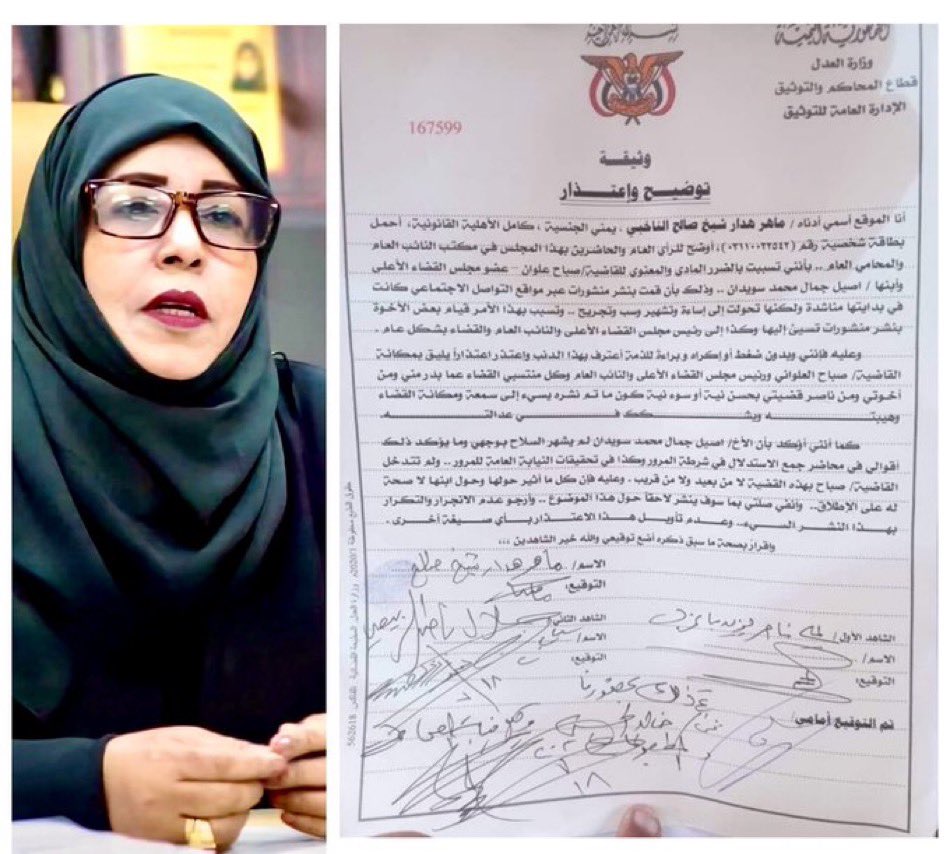 الجمهورية اليمنية
وزارة العدل
قطاع المحاكم والتوثيق
الإدارة العامة للتوثيق
167599
وثيقة
توضيح وإعتذار
أنا الموقع أسمي أدناه / ماهر هدار شيخ صالح الناخبي، يمني الجنسية، كامل الأهلية القانونية، أحمل
بطاقة شخصية رقم (٠٣١١٠٠٢٢٥٤٢)، أوضح للرأي العام والحاضرين بهذا المجلس في مكتب النائب العام
والمحامي العام .. بأنني تسببت بالضرر المادي والمعنوي للقاضية/صباح علوان - عضو مجلس القضاء الأعلى
وأبنها / اصيل جمال محمد سويدان .. وذلك بأن قمت بنشر منشورات عبر مواقع التواصل الاجتماعي كانت
في بدايتها مناشدة ولكنها تحولت إلى إساءة وتشهير وسب وتجريح .. وتسبب بهذا الأمر قيام بعض الأخوة
بنشر منشورات تسيئ إليها وكذا إلى رئيس مجلس القضاء الأعلى والنائب العام والقضاء بشكل عام .
وعليه فإنني وبدون ضغط أو إكراه و براءة للذمة أعترف بهذا الذنب وأعتذر اعتذاراً يليق بمكانة
القاضية/ صباح العلواني ورئيس مجلس القضاء الأعلى والنائب العام وكل منتسبي القضاء عما بدر مني ومن
أخوتي ومن ناصر قضيتي بحسن نية أو سوء نية كون ما تم نشره يسيء إلى سمعة ومكانة القضاء
وهيبته ويشكك في عدالته.
كما أنني أؤكد بأن الأخ/ اصيل جمال محمد سويدان لم يشهر السلاح بوجهي وما يؤكد ذلك
أقوالي في محاضر جمع الاستدلال في شرطة المرور وكذا في تحقيقات النيابة العامة للمرور .. ولم تتدخل
القاضية/ صباح بهذه القضية لا من بعيد ولا من قريب. وعليه فإن كل ما أثير حولها وحول ابنها لا صحة
له على الإطلاق .. وأنفي صلتي بما سوف ينشر لاحقا حول هذا الموضوع .. وأرجو عدم الانجرار والتكرار
بهذا النشر السيء .. وعدم تأويل هذا الاعتذار بأي صيغة أخرى .
وإقرار بصحة ما سبق ذكره أضع توقيعي والله خير الشاهدين ،،،
الاسم/ ماهر هدار شيخ صالح
التوقيع:
الشاهد الأول/
الشاهد الثاني/
الاسم/
الاسم/
التوقيع:
التوقيع:
تم التوقيع أمامي/